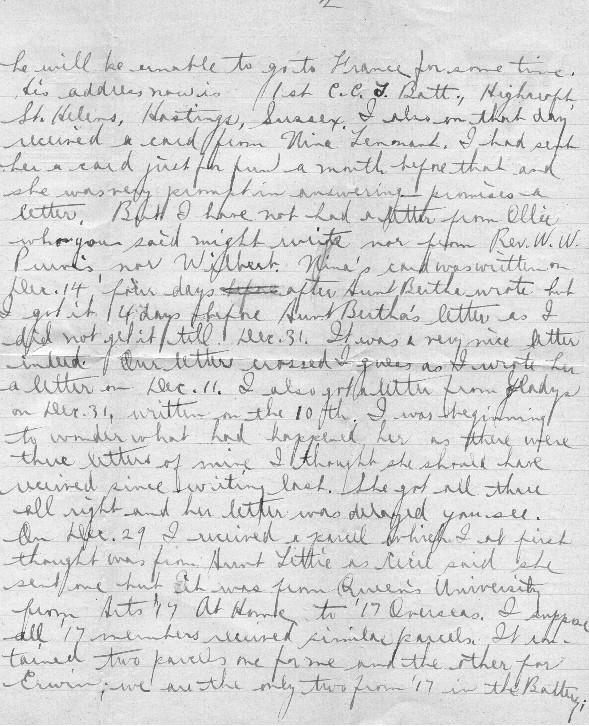 2
he will be unable to go to France for some time.
His address now is 1st C.C.T. Batt., Highcroft,
St. Helens, Hastings, Sussex. I also on that day
received a card from Nina Lennant. I had sent
her a card just for fun a month before that and
she was very prompt in answering promises a
letter. But I have not had a letter from Ollie
who you said might write nor from Rev. W. W.
Purvis nor Wilbert. Nina's card was written on
Dec. 14, four days after Aunt Bertha wrote but
I got it 4 days before Aunt Bertha's letter as I
did not get it till Dec. 31. It was a very nice letter
indeed. Our letter crossed I guess as I wrote her
a letter on Dec. 11. I also got a letter from Gladys
on Dec. 31, written on the 10th. I was beginning
to wonder what had happened her as there were
three letters of mine I thought she should have
received since writing last. She got all three
all right and her letter was delayed you see.
On Dec. 29 I received a parcel which I at first
thought was from Aunt Littie as Cecil said she
sent one but it was from Queen's University
from Arts '17 At Home to '17 Overseas. I suppose
all '17 members received similar parcels. It con-
tained two parcels one for me and the other for
Erwin; we are the only two from '17 in the Battery;